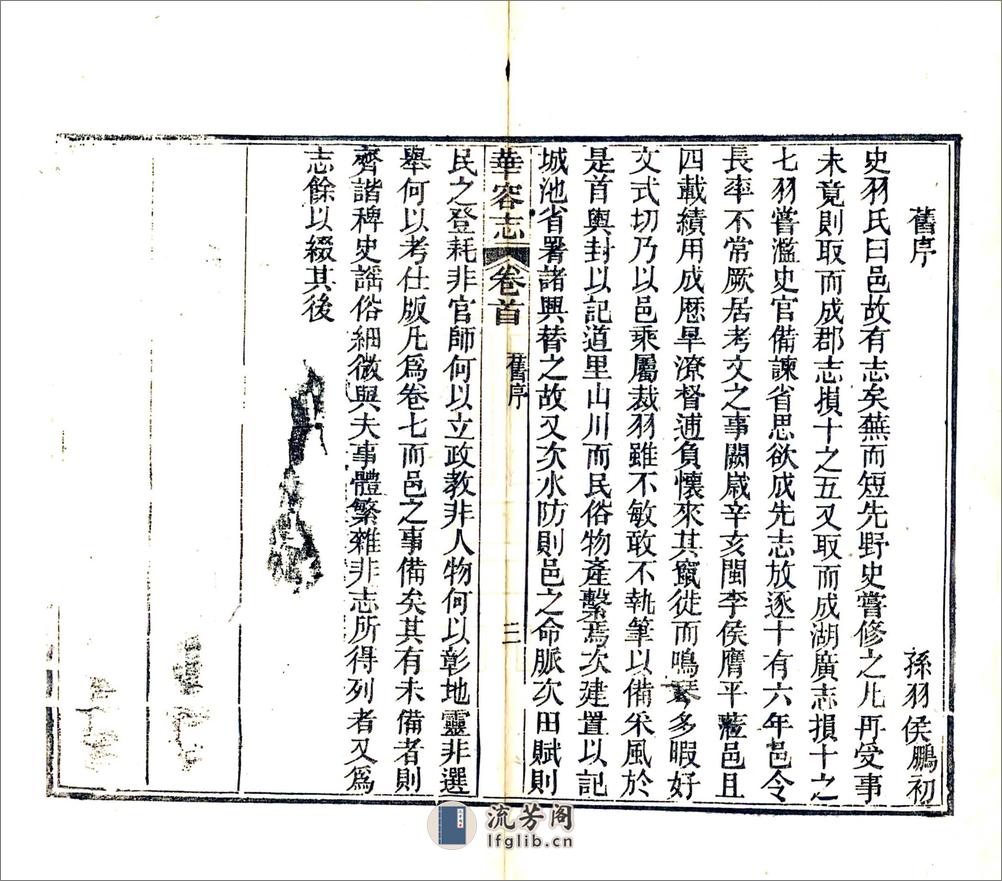 舊序
孫羽侯鵬初
史羽氏曰邑故有志矣蕪而短先野史嘗修之凡再受事
未竟則取而成郡志損十之五又取而成湖廣志損十之
七羽嘗濫史官備諫省思欲成先志放逐十有六年邑令
長率不常厥居考文之事闕歲辛亥閩李侯膺平蒞邑且
四載績用成歷旱潦督逋負懷來其竄徙而鳴琴多暇好
文式切乃以邑乘屬裁羽雖不敏敢不執筆以備采風於
是首輿封以記道里山川而民俗物產繫焉次建置以記
城池省署諸興替之故又次水防則邑之命脈次田賦則
華容志 卷首 舊序 三
民之登耗非官師何以立政教非人物何以彰地靈非選
舉何以考仕版凡爲卷七而邑之事備矣其有未備者則
齊諧稗史謡俗細微與夫事體繁雜非志所得列者又爲
志餘以綴其後
流芳阁
lfglib.cn